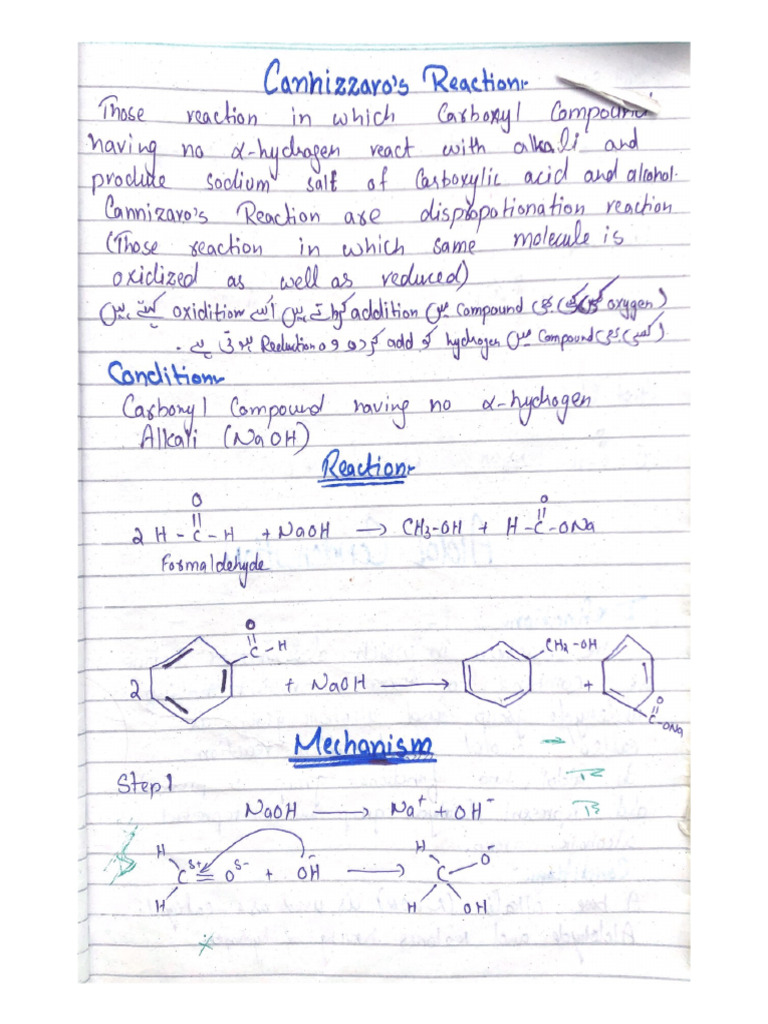 Cannizzaro's Reaction:-
Those reaction in which Carbonyl Compound
having no α-hydrogen react with alkali and
produce sodium salt of Carboxylic acid and alcohol.
Cannizaro's Reaction are dispropotionation reaction
(Those reaction in which same molecule is
oxidized as well as reduced)
oxygen) کسی بھی compound میں addition کرتے ہیں اُسے oxidition کہتے ہیں
(کسی بھی Compound میں hydrogen کو add کر دو وہ Reduction ہوتی ہے۔
Condition:-
Carbonyl Compound having no α-hydrogen
Alkali (NaOH)
Reaction:-
O
2 H - C - H + NaOH → CH3-OH + H - C - ONa
O
Formaldehyde
O
C - H
CH2 - OH
2 + NaOH → +
O
C - ONa
Mechanism
Step 1
NaOH → Na+ + OH-
H H O-
C δ+ O δ- + OH- → C
H H OH